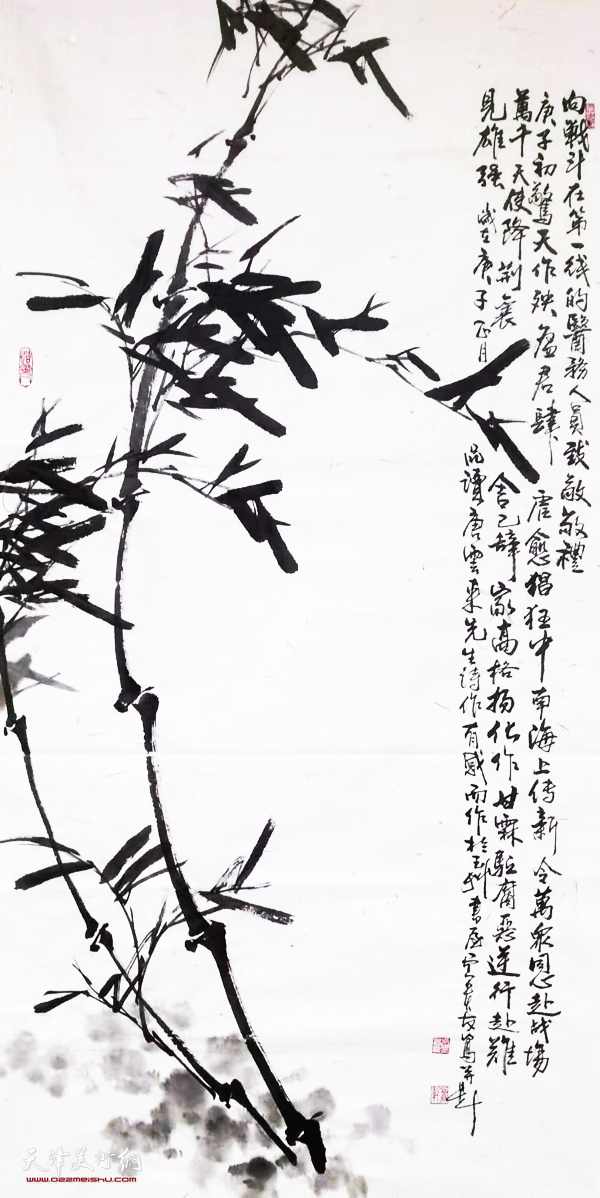 向戰斗在第一线的醫務人員致敬敬禮
庚子初驚天作殃瘟君肆虐愈猖狂中南海上傳新令萬衆同心赴战場
萬千天使降荆襄舍己辞家高格扬化作甘霖駈腐惡逆行赴難
見雄强 歲在庚子正月
品讀唐雲来先生詩作有感而作於書屋寫并題
天津美术網
www.022meishu.com